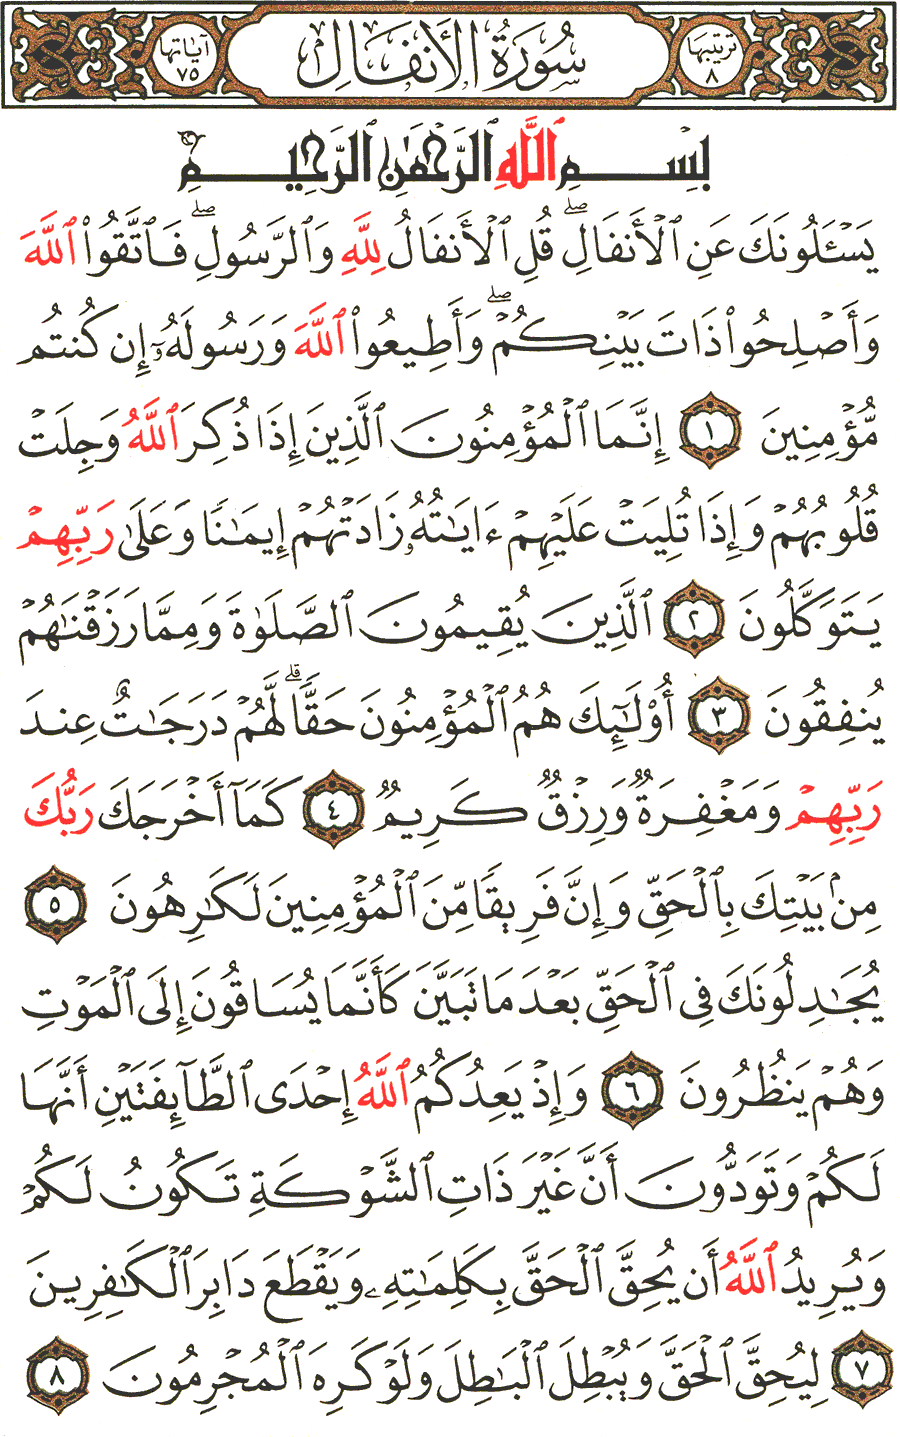 ترتيبها ٨
سُورَةُ الأَنفَال
آياتها ٧٥
بِسْمِ ٱللَّهِ ٱلرَّحْمَٰنِ ٱلرَّحِيمِ
يَسْـَٔلُونَكَ عَنِ ٱلْأَنفَالِۖ قُلِ ٱلْأَنفَالُ لِلَّهِ وَٱلرَّسُولِۖ فَٱتَّقُوا۟ ٱللَّهَ
وَأَصْلِحُوا۟ ذَاتَ بَيْنِكُمْۖ وَأَطِيعُوا۟ ٱللَّهَ وَرَسُولَهُۥٓ إِن كُنتُم
مُّؤْمِنِينَ ١ إِنَّمَا ٱلْمُؤْمِنُونَ ٱلَّذِينَ إِذَا ذُكِرَ ٱللَّهُ وَجِلَتْ
قُلُوبُهُمْ وَإِذَا تُلِيَتْ عَلَيْهِمْ ءَايَٰتُهُۥ زَادَتْهُمْ إِيمَٰنًا وَعَلَىٰ رَبِّهِمْ
يَتَوَكَّلُونَ ٢ ٱلَّذِينَ يُقِيمُونَ ٱلصَّلَوٰةَ وَمِمَّا رَزَقْنَٰهُمْ
يُنفِقُونَ ٣ أُو۟لَٰٓئِكَ هُمُ ٱلْمُؤْمِنُونَ حَقًّاۚ لَّهُمْ دَرَجَٰتٌ عِندَ
رَبِّهِمْ وَمَغْفِرَةٌ وَرِزْقٌ كَرِيمٌ ٤ كَمَآ أَخْرَجَكَ رَبُّكَ
مِنۢ بَيْتِكَ بِٱلْحَقِّ وَإِنَّ فَرِيقًا مِّنَ ٱلْمُؤْمِنِينَ لَكَٰرِهُونَ ٥
يُجَٰدِلُونَكَ فِى ٱلْحَقِّ بَعْدَ مَا تَبَيَّنَ كَأَنَّمَا يُسَاقُونَ إِلَى ٱلْمَوْتِ
وَهُمْ يَنظُرُونَ ٦ وَإِذْ يَعِدُكُمُ ٱللَّهُ إِحْدَى ٱلطَّآئِفَتَيْنِ أَنَّهَا
لَكُمْ وَتَوَدُّونَ أَنَّ غَيْرَ ذَاتِ ٱلشَّوْكَةِ تَكُونُ لَكُمْ
وَيُرِيدُ ٱللَّهُ أَن يُحِقَّ ٱلْحَقَّ بِكَلِمَٰتِهِۦ وَيَقْطَعَ دَابِرَ ٱلْكَٰفِرِينَ
٧ لِيُحِقَّ ٱلْحَقَّ وَيُبْطِلَ ٱلْبَٰطِلَ وَلَوْ كَرِهَ ٱلْمُجْرِمُونَ ٨